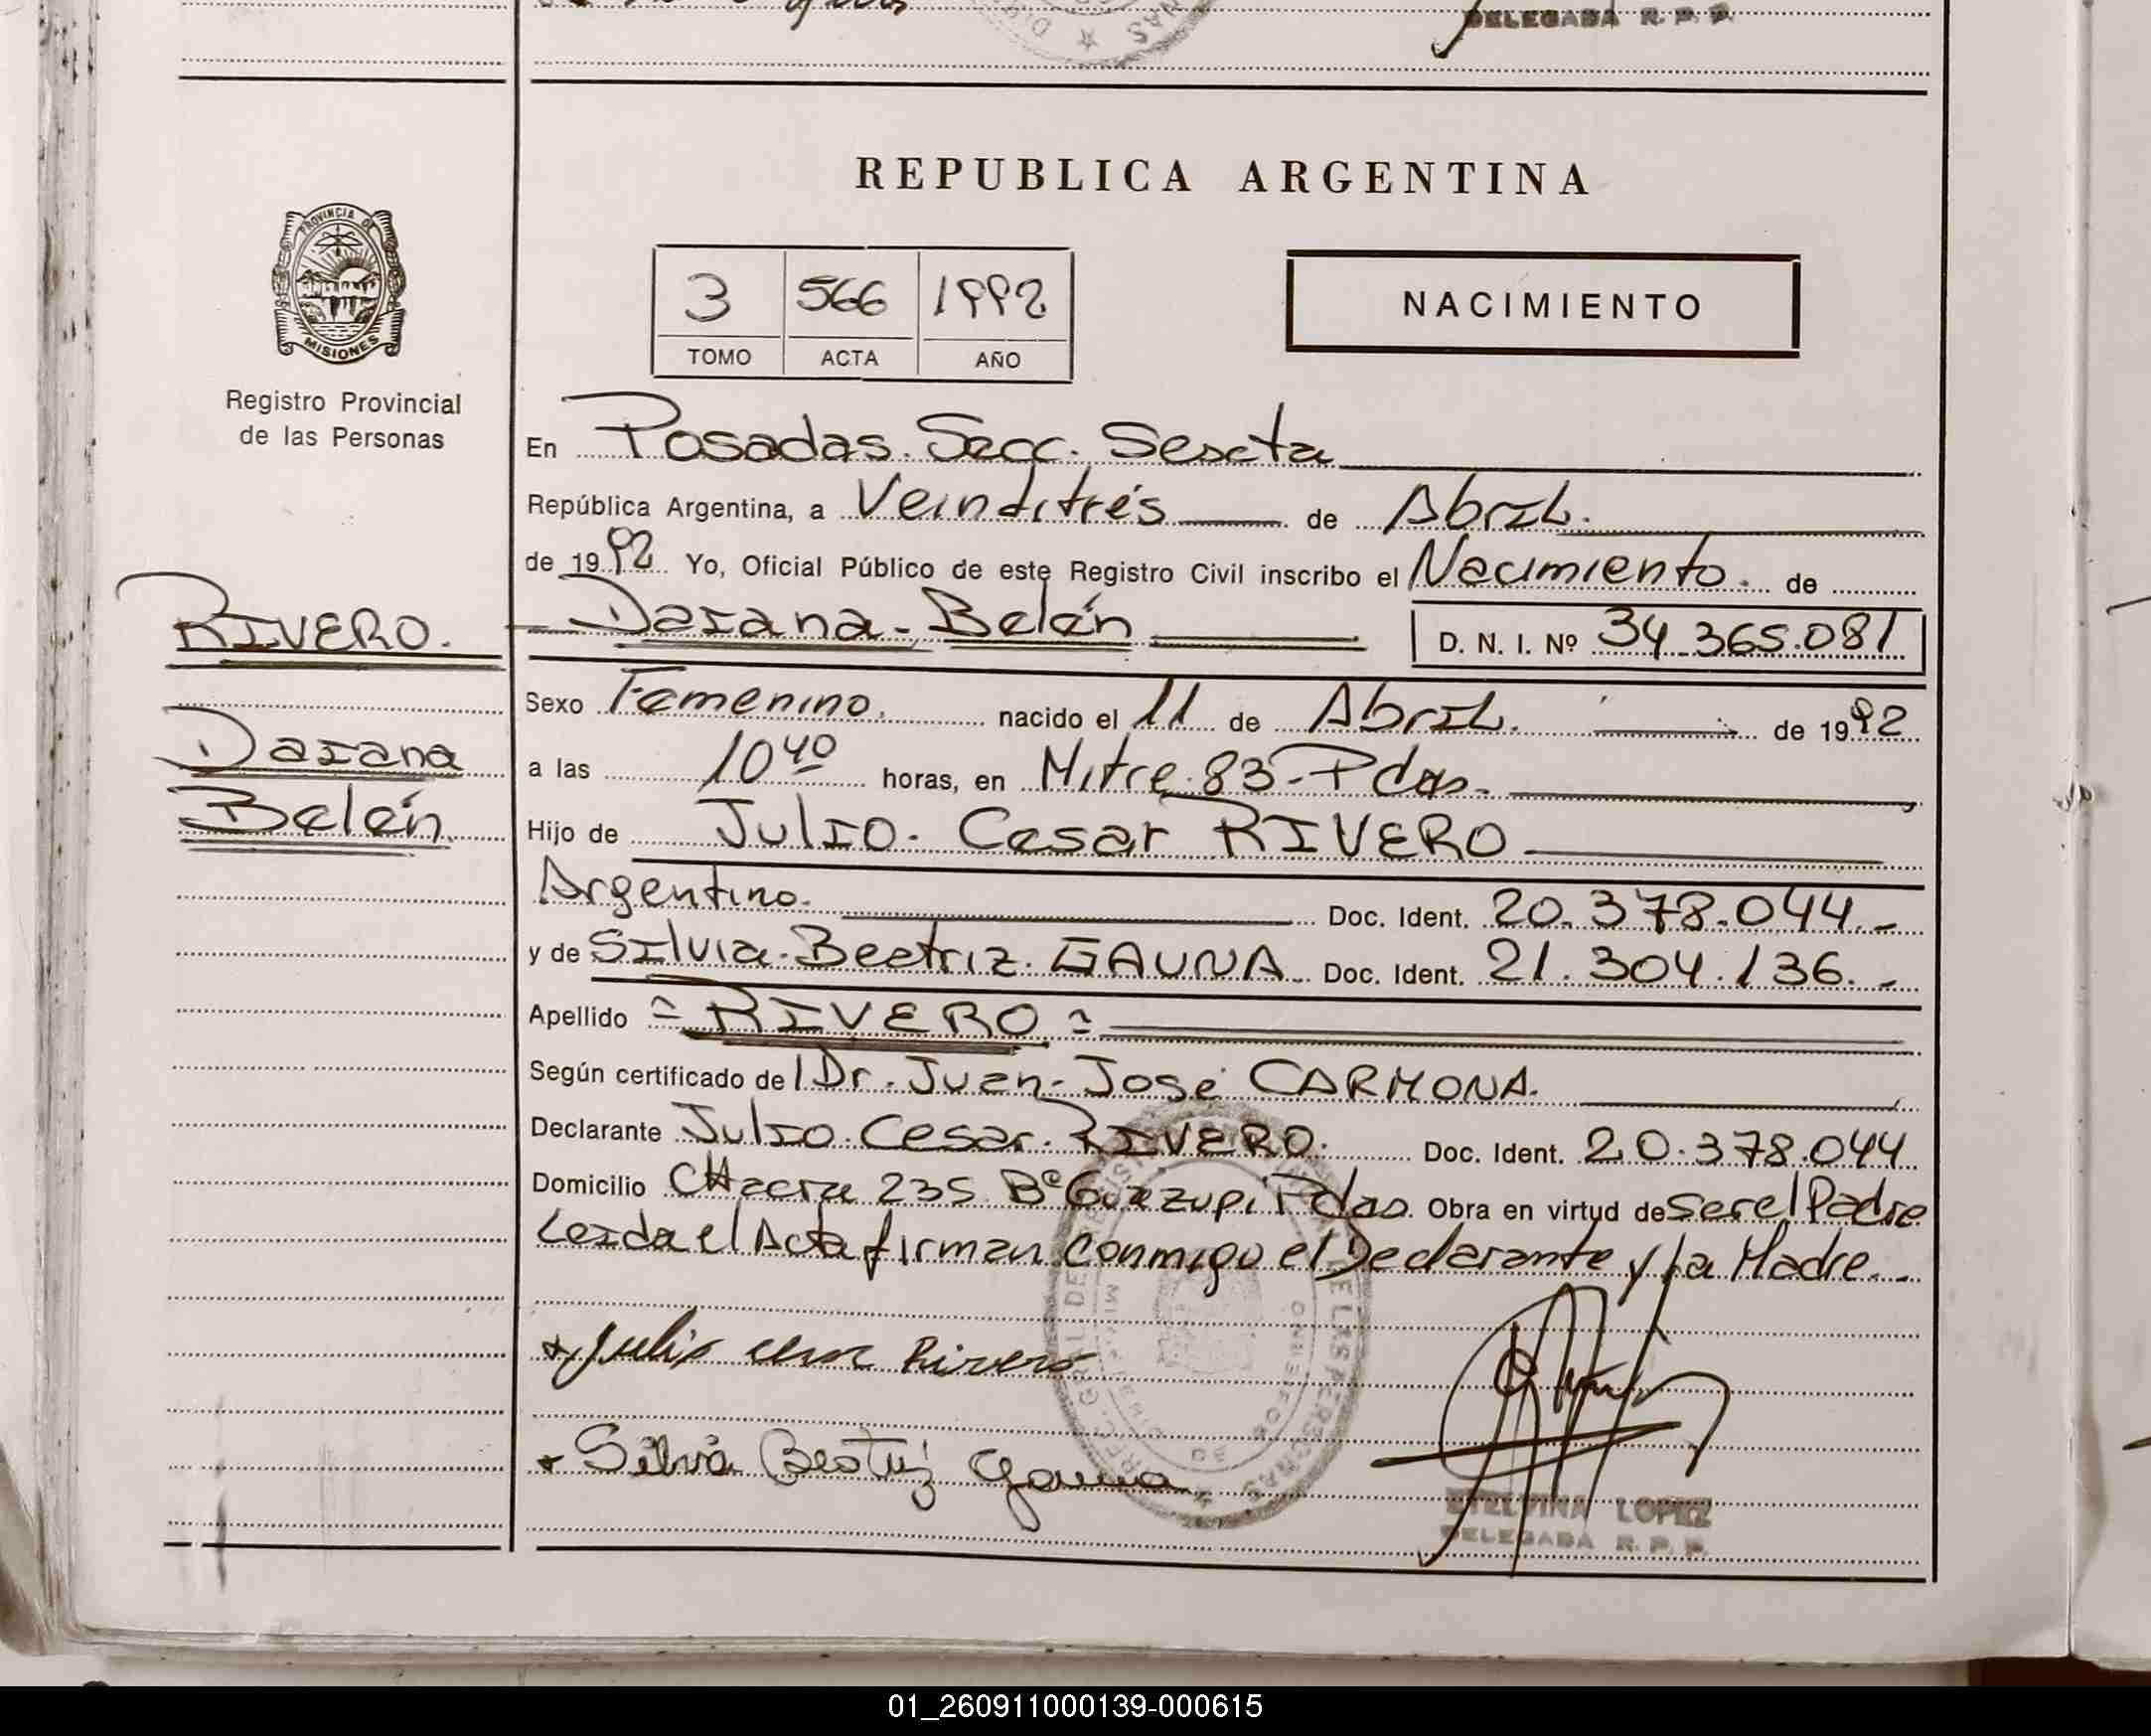 DELEGADA R. P. P.
REPUBLICA ARGENTINA
PROVINCIA DE
MISIONES
3 566 1992
TOMO ACTA AÑO
NACIMIENTO
Registro Provincial
de las Personas
En Posadas. Secc. Sexta
República Argentina, a Veinditrés de Abril.
de 1992 Yo, Oficial Público de este Registro Civil inscribo el Nacimiento. de
RIVERO.
Daiana Belén
Daiana-Belén D. N. I. Nº 34.365.081
Sexo Femenino. nacido el 11 de Abril. de 1992
a las 10 40 horas, en Mitre 83-Pdas.
Hijo de Julio. Cesar RIVERO
Argentino. Doc. Ident. 20.378.044.-
y de Silvia.Beatriz. GAUNA Doc. Ident. 21.304.136.-
Apellido = RIVERO =
Según certificado de l Dr. Juan-José CARMONA.
Declarante Julio.Cesar.RIVERO. Doc. Ident. 20.378.044
Domicilio CHacra 235 Bº Guazupi Pdas. Obra en virtud de ser el Padre
Leida el Acta firman conmigo el Declarante y La Madre.
Julio Rivero
Silvia Beatriz Gauna
ETELVINA LOPEZ
DELEGADA R. P. P.
01_260911000139-000615